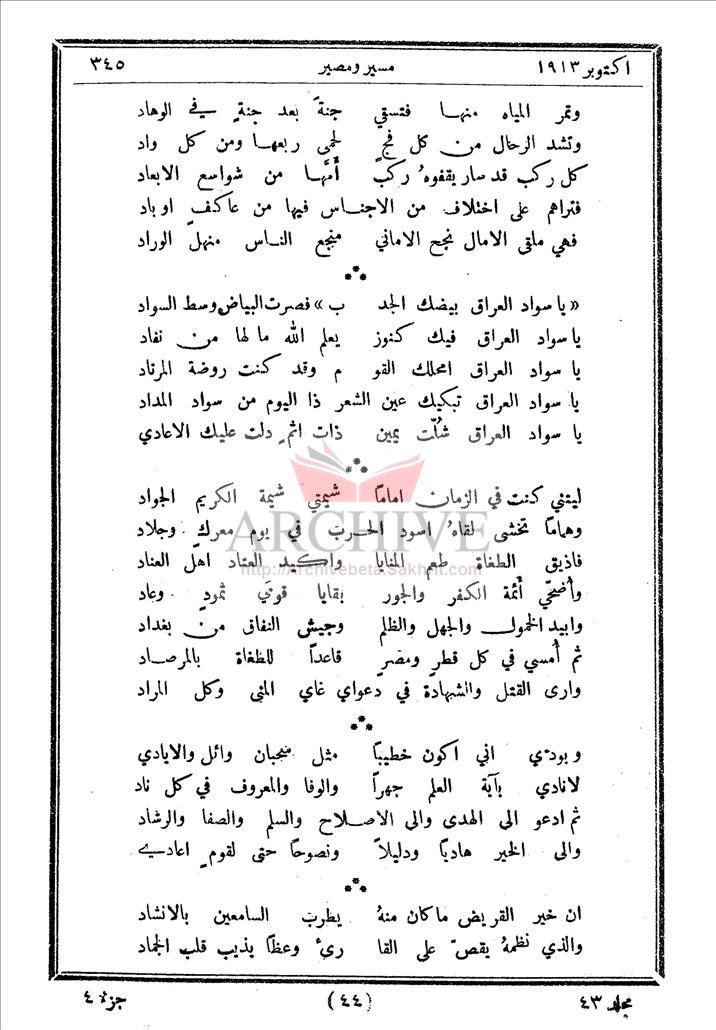 اكتوبر ١٩١٣ مسير ومصير ٣٤٥
وتمر المياه منها فتسقي جنةً بعد جنةٍ في الوهاد
وتشد الرحال من كل فجٍ لحمى ربعها ومن كل واد
كل ركب قد سار يقفوهُ ركبٌ أمَّها من شواسع الابعاد
فتراهم على اختلاف من الاجناس فيها من عاكفٍ او باد
فهي ملقى الامال نجح الاماني منجع الناس منهل الوراد
⁂
«يا سواد العراق بيضك الجد ب» فصرت البياض وسط السواد
يا سواد العراق فيك كنوز يعلم الله ما لها من نفاد
يا سواد العراق امحلك القو م وقد كنت روضة المرتاد
يا سواد العراق تبكيك عين الشعر ذا اليوم من سواد المداد
يا سواد العراق شُلّت يمين ذات اثمٍ دلت عليك الاعادي
⁂
ليتني كنت في الزمان اماماً شيمتي شيمة الكريم الجواد
وهماماً تخشى لقاهُ اسود الحرب في يوم معركٍ وجلاد
فاذيق الطغاة طعم المنايا واكيد العتاد اهل العناد
وأضحّي أئمة الكفر والجور بقايا قومَي ثمودٍ وعاد
وابيد الخمول والجهل والظلم وجيش النفاق من بغداد
ثم أمسي في كل قطرٍ ومصرٍ قاعداً للطغاة بالمرصاد
وارى القتل والشهادة في دعواي غاي المنى وكل المراد
⁂
وبودي اني اكون خطيباً مثل سحبان وائل والايادي
لانادي بآية العلم جهراً والوفا والمعروف في كل ناد
ثم ادعو الى الهدى والى الاصلاح والسلم والصفا والرشاد
والى الخير هادياً ودليلاً ونصوحاً حتى لقومٍ اعادي
⁂
ان خير القريض ما كان منهُ يطرب السامعين بالانشاد
والذي نظمهُ يقصّ على القا رئ وعظاً يذيب قلب الجماد
مجلد ٤٣ (٤٤) جزء ٤
ARCHIVE
http://Archivebeta.Sakhrit.com